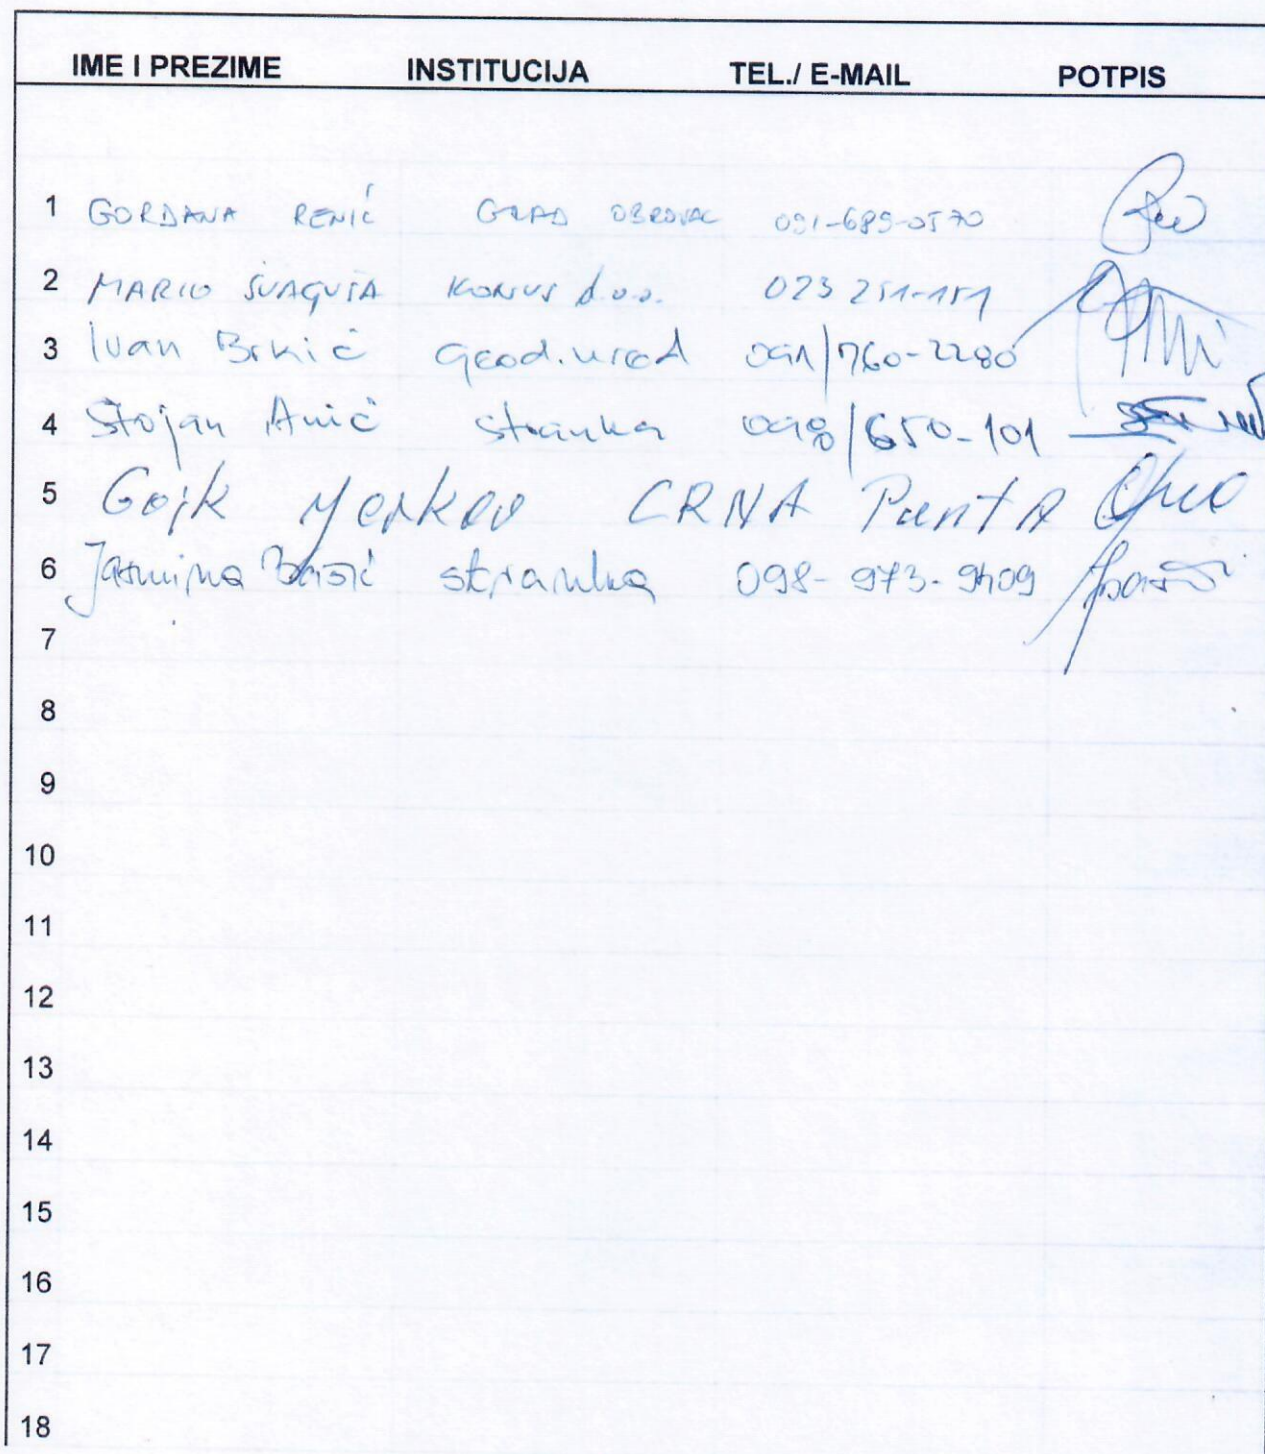 IME I PREZIME INSTITUCIJA TEL./ E-MAIL POTPIS
1 GORDANA RENIĆ GRAD OBROVAC 091-689-0570
2 MARIO KONUS d.o.o. 023 251-151
3 Ivan Brkić geod.ured 091/760-2280
4 Stojan Anić stranka 098/650-101
5 Gojk CRNA PuntA
6 Jasmina Basić stranka 098-973-9409
7
8
9
10
11
12
13
14
15
16
17
18